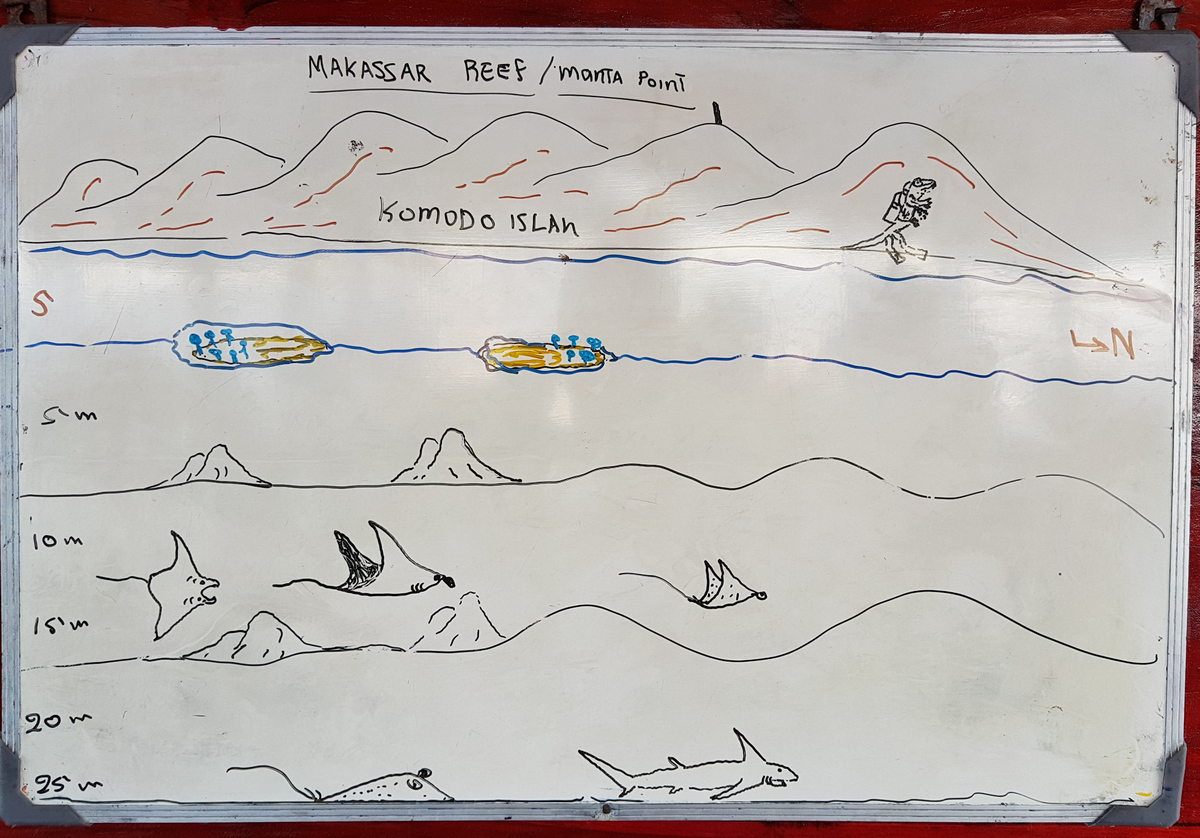 MAKASSAR REEF / MANTA POINT
KOMODO ISLAN
S
↳N
5 m
10 m
15 m
20 m
25 m